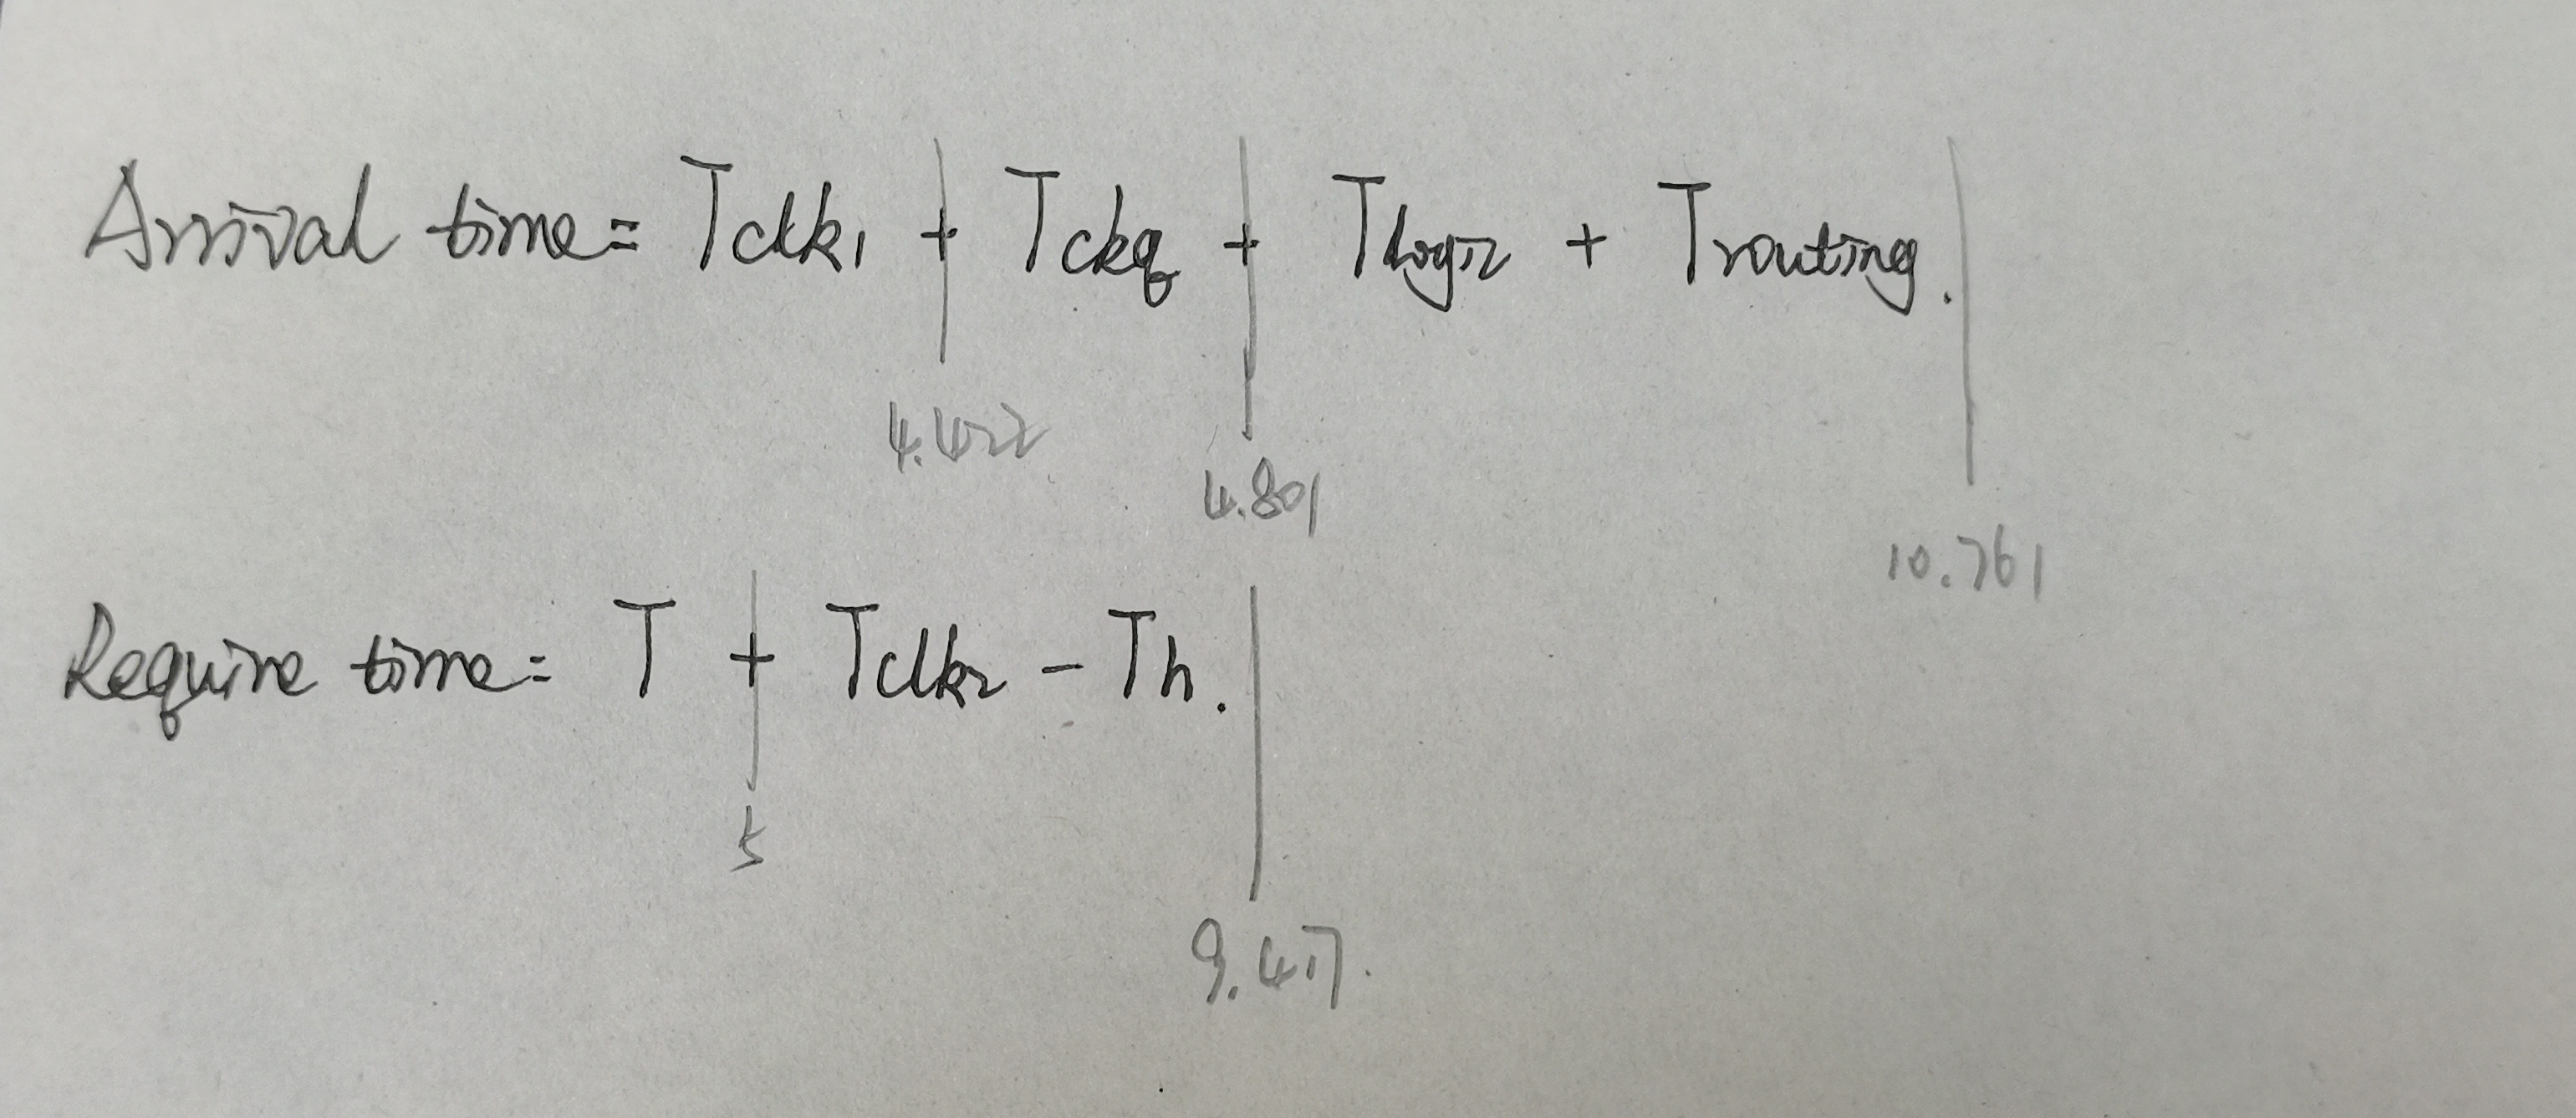 Arrival time = Tclk1 + Tckq + Tlogic + Trouting.
4.422
4.801
10.761
Require time = T + Tclk2 - Th.
5
9.417.